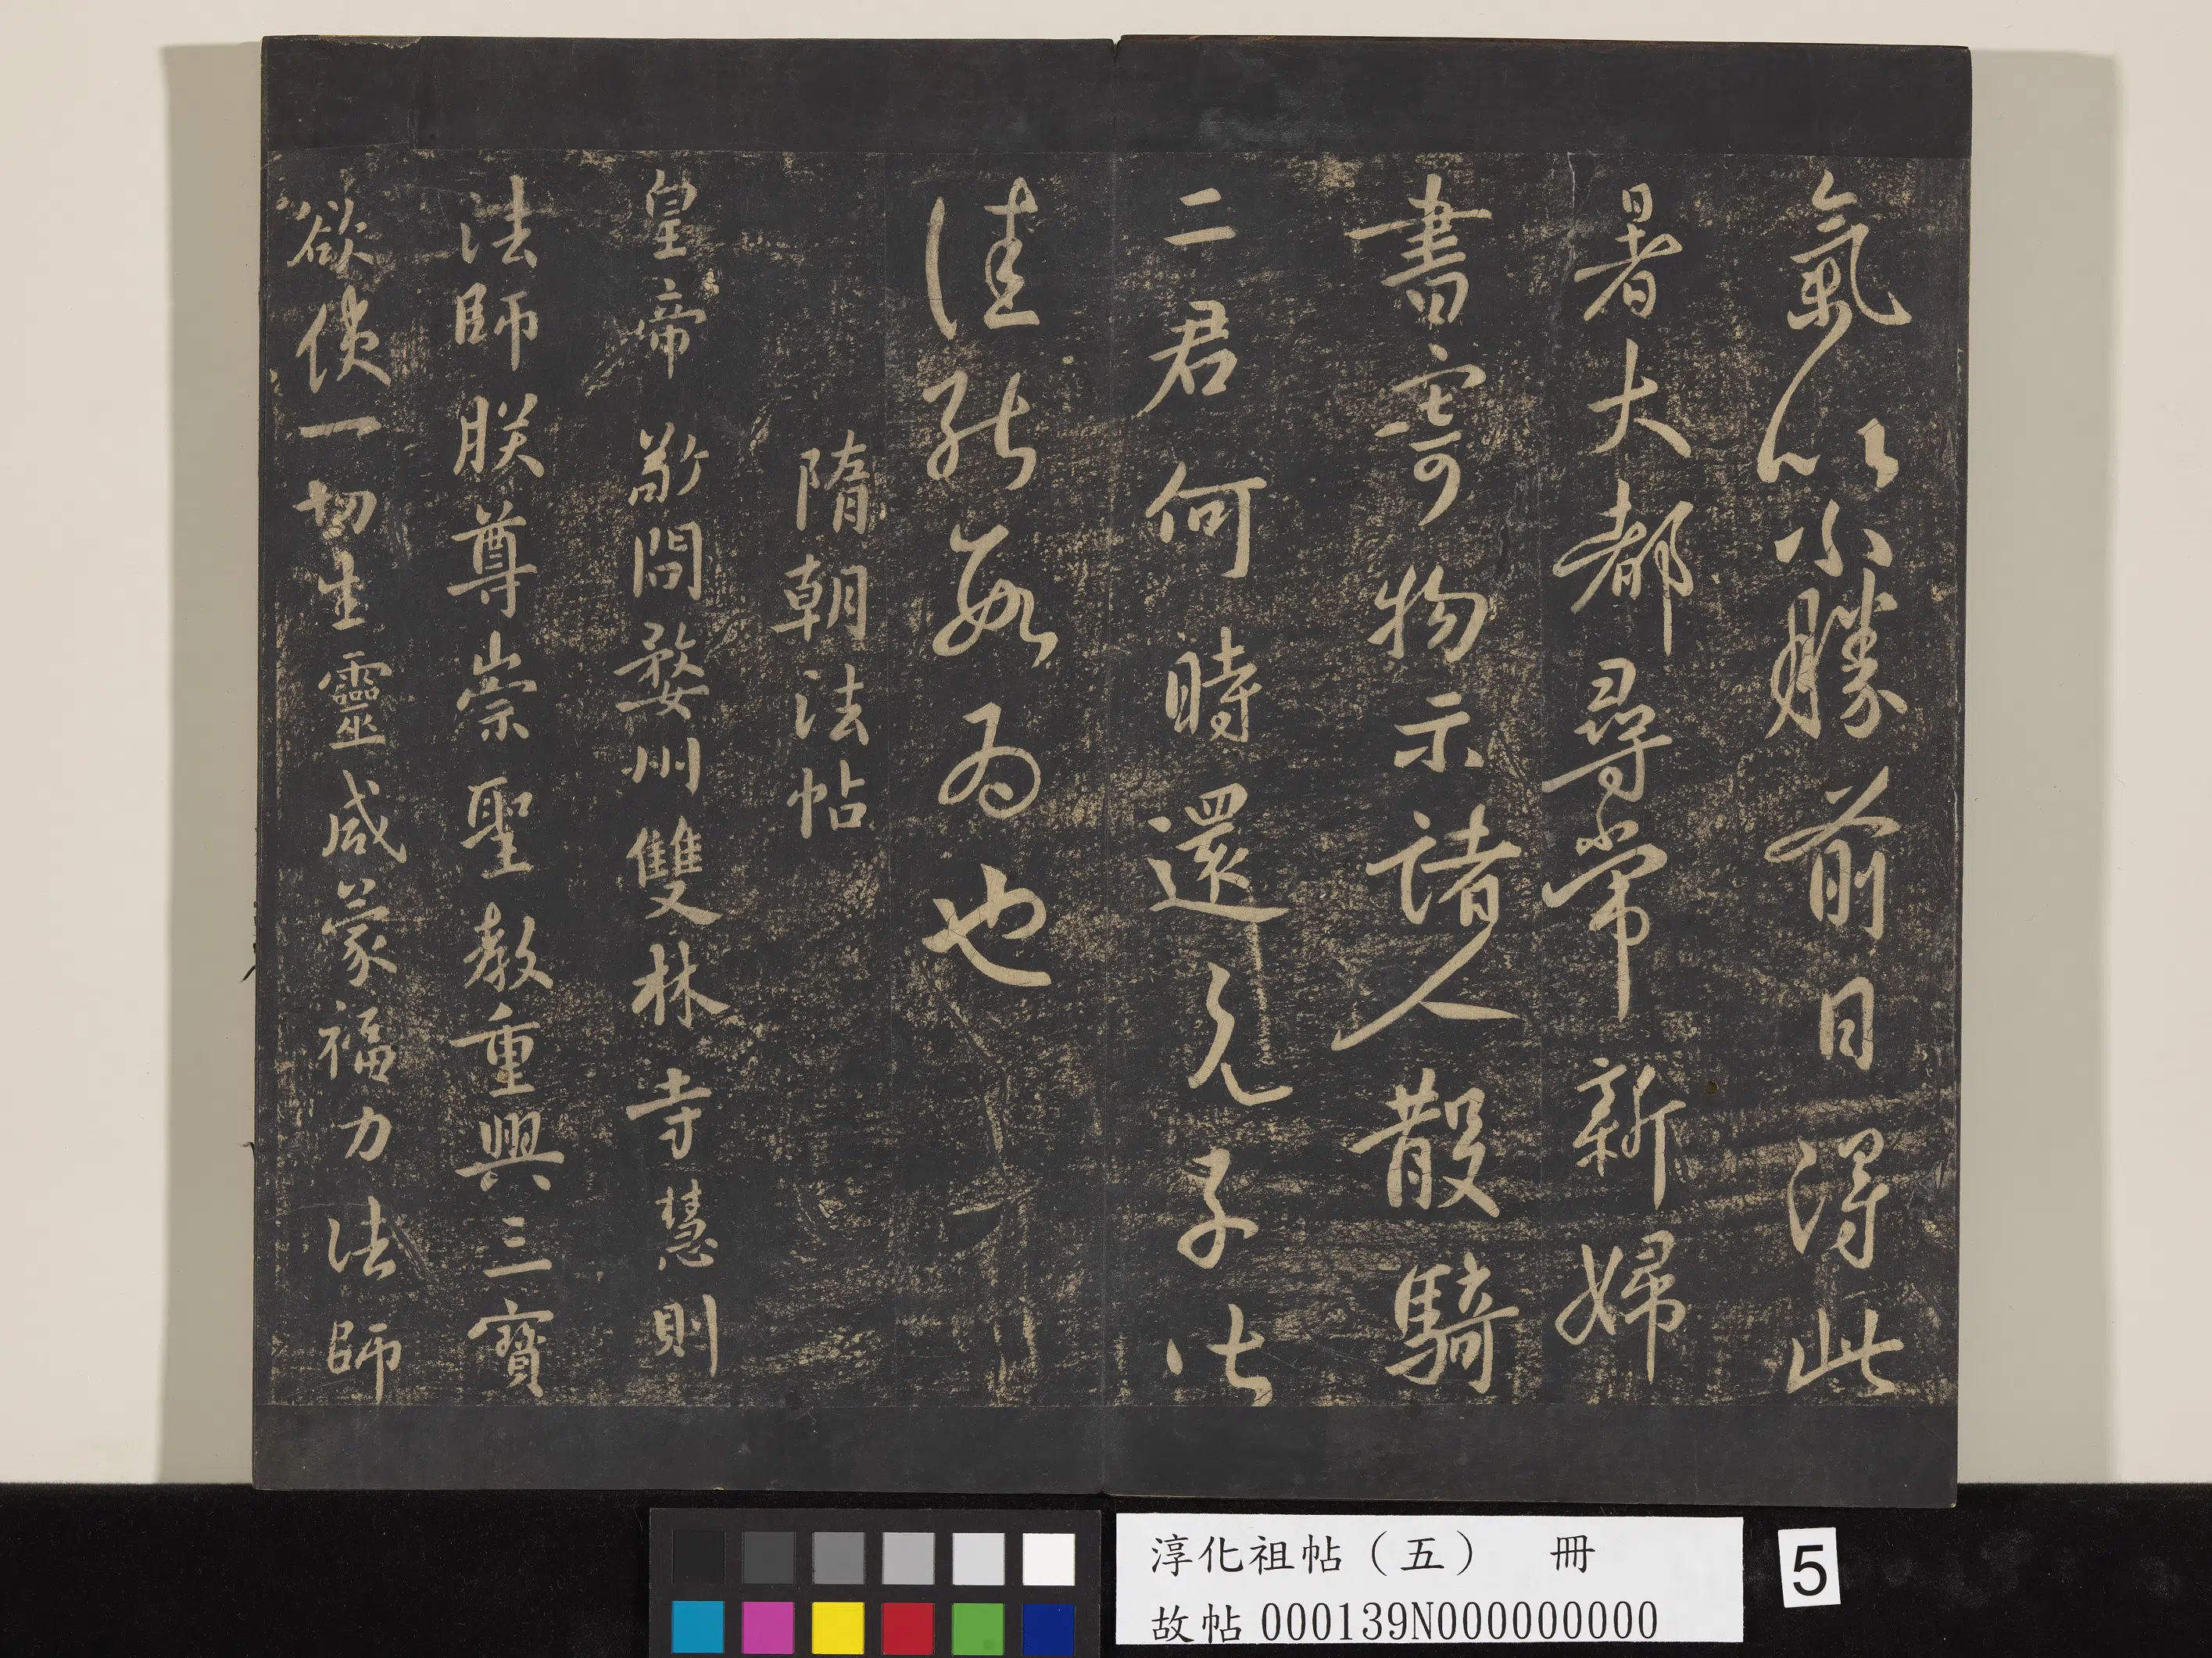 氣以小勝前日得此
暑大都尋常新婦
書寄物示諸人散騎
二君何時還見子比
佳能數為也
隋朝法帖
皇帝敬問婺州雙林寺慧則
法師朕尊崇聖教重興三寶
欲使一切生靈咸蒙福力法師
淳化祖帖（五） 冊
故帖000139N000000000
5